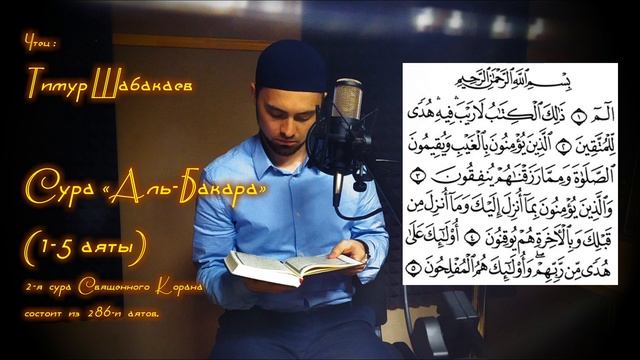 Чтец:
Тимур Шабакаев
Сура «Аль-Бакара»
(1-5 аяты)
2-я сура Священного Корана
состоит из 286-и аятов.
بِسْمِ ٱللَّهِ ٱلرَّحْمَٰنِ ٱلرَّحِيمِ
الٓمٓ ١ ذَٰلِكَ ٱلْكِتَٰبُ لَا رَيْبَ ۛ فِيهِ ۛ هُدًى
لِّلْمُتَّقِينَ ٢ ٱلَّذِينَ يُؤْمِنُونَ بِٱلْغَيْبِ وَيُقِيمُونَ
ٱلصَّلَوٰةَ وَمِمَّا رَزَقْنَٰهُمْ يُنفِقُونَ ٣
وَٱلَّذِينَ يُؤْمِنُونَ بِمَآ أُنزِلَ إِلَيْكَ وَمَآ أُنزِلَ مِن
قَبْلِكَ وَبِٱلْءَاخِرَةِ هُمْ يُوقِنُونَ ٤ أُو۟لَٰٓئِكَ عَلَىٰ
هُدًى مِّن رَّبِّهِمْ ۖ وَأُو۟لَٰٓئِكَ هُمُ ٱلْمُفْلِحُونَ ٥